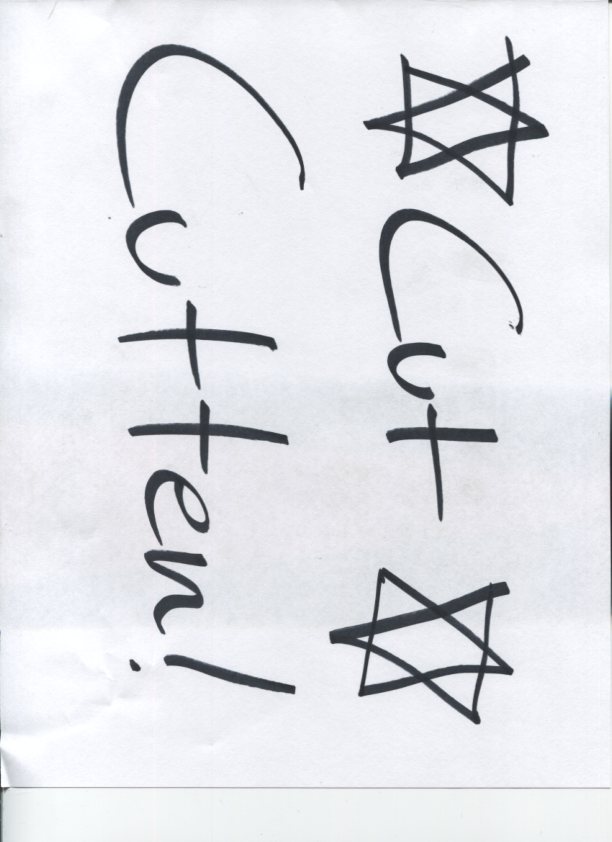 Cut
Cutten!